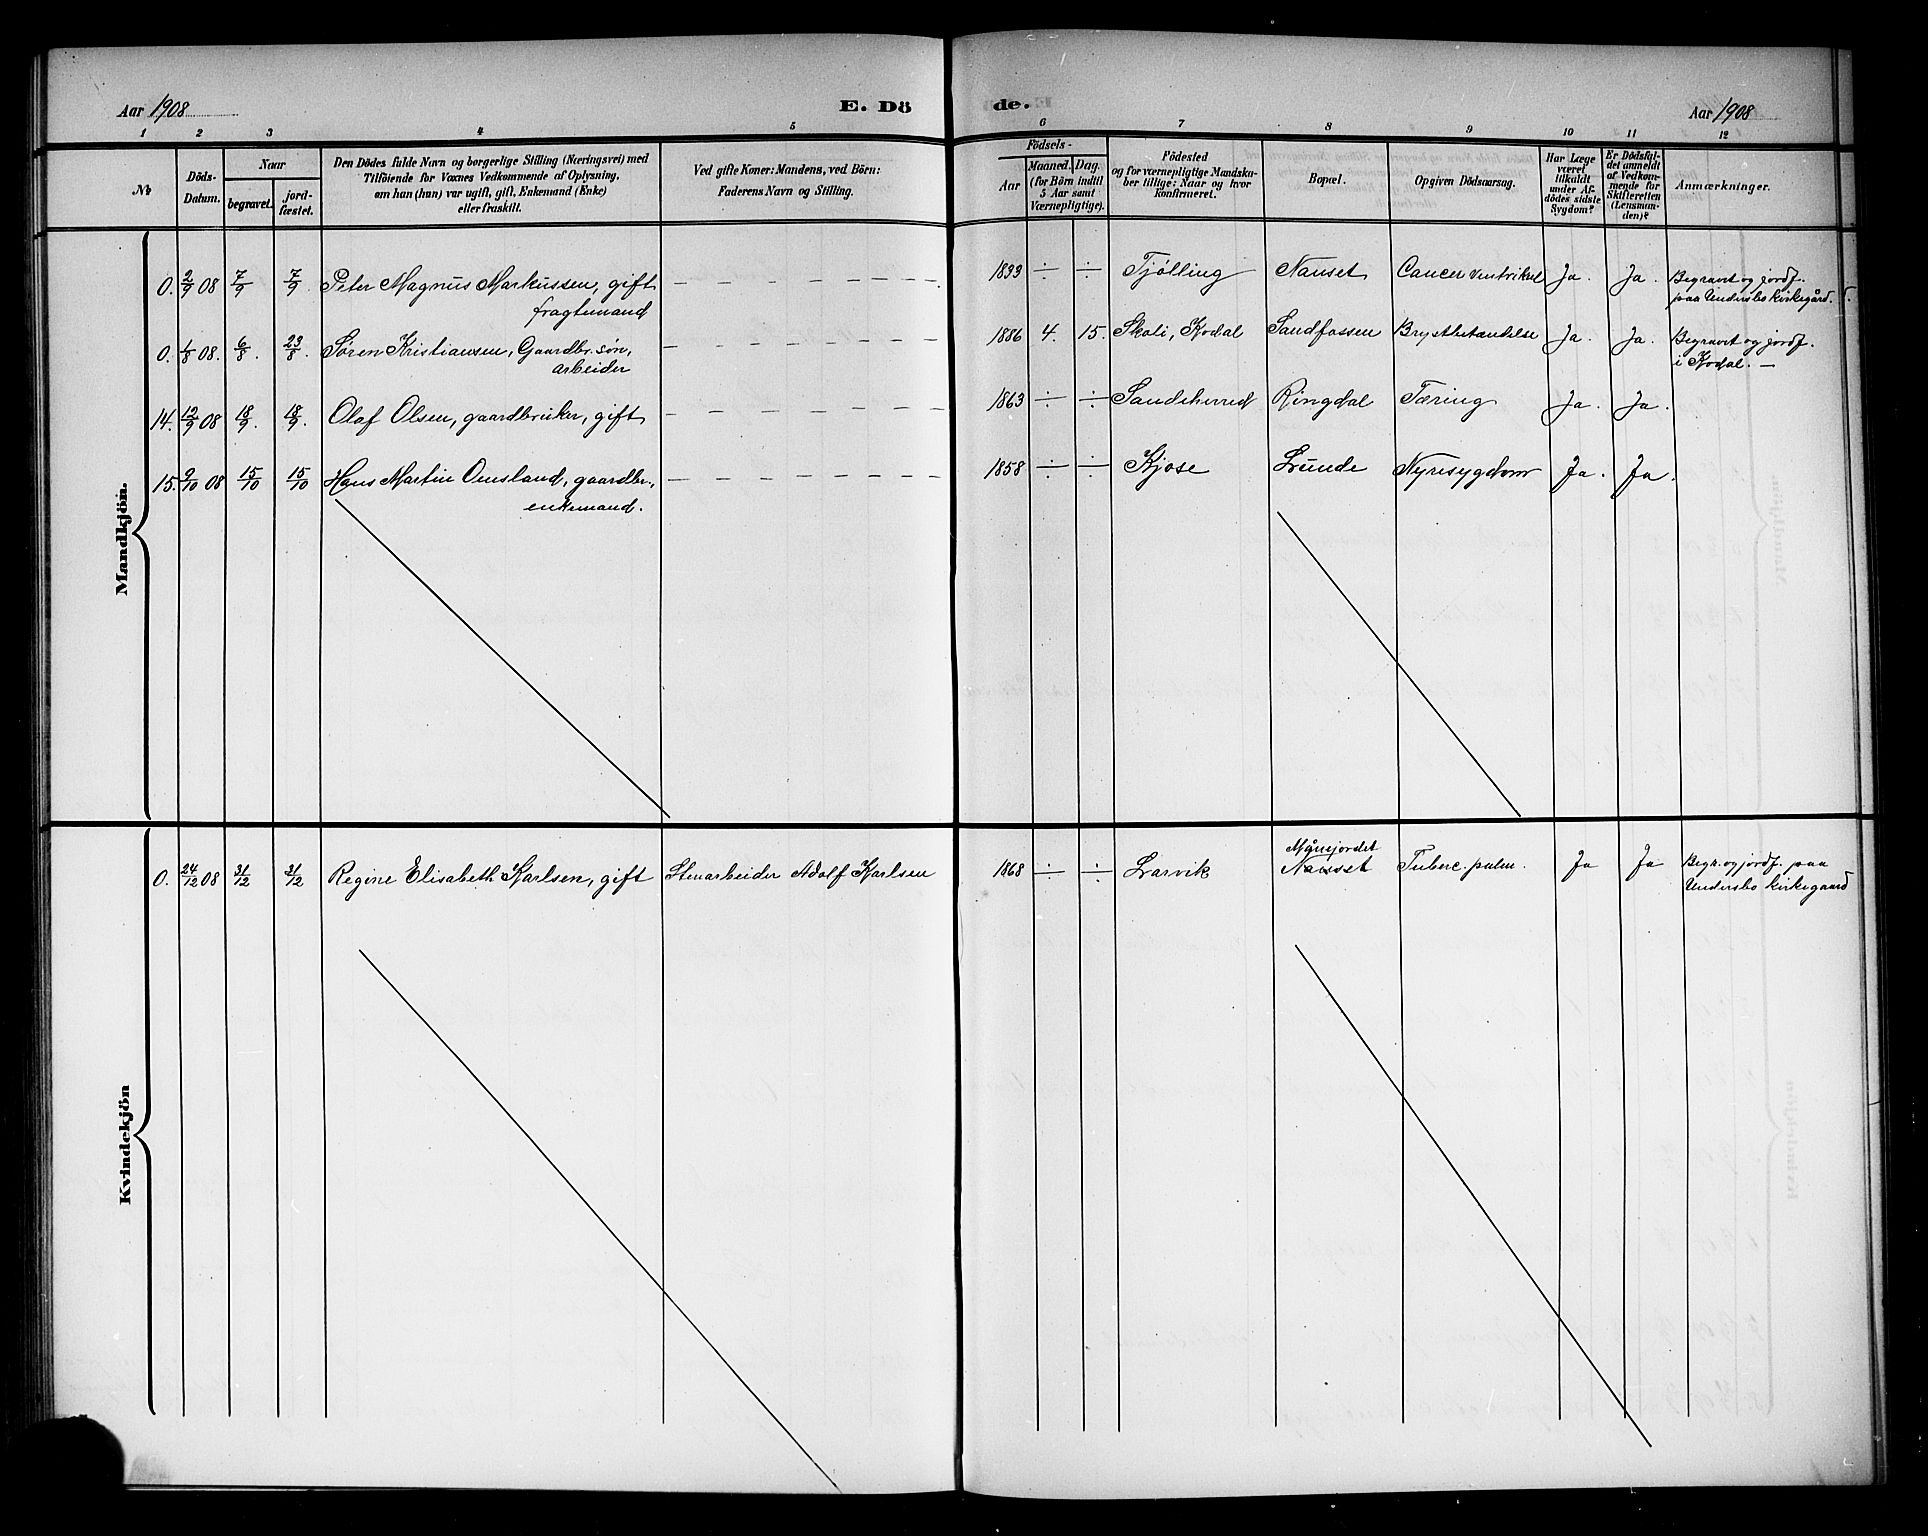 Aar 1908
E. Dö
de.
Aar 1908
1 2 3 4 5
6 7 8 9 10 11 12
No
Döds-
Datum.
Naar
begravet.
jord-
fæstet.
Den Dödes fulde Navn og borgerlige Stilling (Næringsvei) med
Tilföiende for Voxnes Vedkommende af Oplysning,
om han (hun) var ugift, gift, Enkemand (Enke)
eller fraskilt.
Ved gifte Koner: Mandens, ved Börn:
Faderens Navn og Stilling.
Födsels-
Aar
Maaned. Dag.
(for Börn indtil
5 Aar samt
Værnepligtige).
Födested
og for værnepligtige Mandska-
ber tillige: Naar og hvor
konfirmeret.
Bopæl.
Opgiven Dödsaarsag.
Har Læge
været
tilkaldt
under Af-
dödes sidste
Sygdom?
Er Dödsfal-
det anmeldt
af Vedkom-
mende for
Skifteretten
(Lensman-
den)?
Anmærkninger.
Mandkjön.
0. 2/9 08 7/9 7/9 Peter Magnus Markussen, gift
fragtemand
1833 ÷ ÷ Tjølling Nanset Cancer ventrikul Ja. Ja. Begravet og jordf.
paa Undersbo kirkegård.
0. 1/8 08. 6/8. 23/8. Søren Kristiansen, Gaardbr. søn,
arbeider
1886 4. 15. Skoli, Kodal Sandfossen Brystbetændelse Ja. Ja. Begravet og jordf.
i Kodal. —
14. 12/9 08 18/9. 18/9. Olaf Olsen, gaardbruker, gift
1863 ÷ ÷ Sandeherred Ringdal Tæring Ja. Ja.
15. 9/10 08 15/10 15/10 Hans Martin Omsland, gaardbr.,
enkemand.
1858 ÷ ÷ Kjose Lunde Nyresygdom Ja. Ja.
Kvindekjön
0. 24/12 08 31/12 31/12 Regine Elisabeth Karlsen, gift Stenarbeider Adolf Karlsen
1868 ÷ ÷ Larvik Månejordet
Nanset Tuberc. pulm. Ja Ja Begr. og jordf. paa
Undersbo kirkegaard